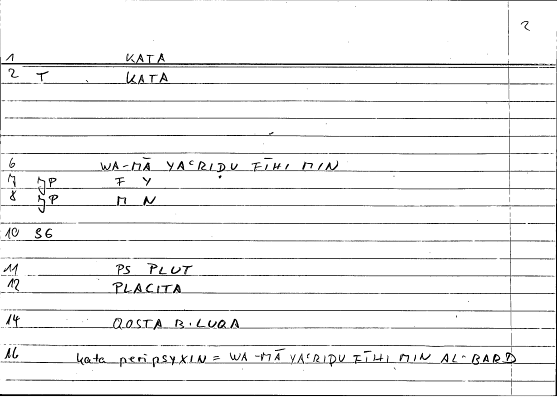 2
1 KATA
2 T . KATA
6 WA-MĀ YAʿRIḌU FĪHI MIN
7 JP F Y
8 JP M N
10 36
11 PS PLUT
12 PLACITA
14 QOSTA B.LUQA
16 kata peripsyXIN = WA-MĀ YAʿRIḌU FĪHI MIN AL-BARD